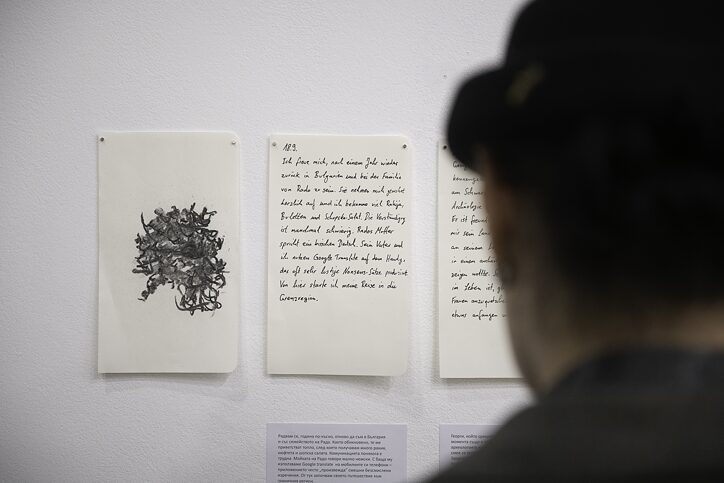 18.9.
Ich freue mich, nach einem Jahr wieder
zurück in Bulgarien und bei der Familie
von Rado zu sein. Sie nehmen mich
herzlich auf und ich bekomme viel Rakija,
Bufteten und Schopska-Salat. Die Verständigung
ist manchmal schwierig. Rados Mutter
spricht ein bisschen Deutsch. Sein Vater und
ich nutzen Google Translate auf dem Handy,
das oft sehr lustige Nonsens-Sätze produziert.
Von hier starte ich meine Reise in die
Grenzregion.
am Schwar
Archäologie
Er ist freun
mir sein Lan
an seinem
in einem
zeigen wollte. S
im Leben ist, gl
Frauen anzuquatschen
etwas anfangen
Радвам се, година по-късно, отново да съм в България
и със семейството на Радо. Както обикновено, те ме
приветстват топло, след което получавам много ракия,
кюфтета и шопска салата. Комуникацията понякога е
трудна. Майката на Радо говори малко немски. С баща му
използваме Google translate на мобилните си телефони –
приложението често „произвежда“ смешни безсмислени
изречения. От тук започвам своето пътешествие към
граничния регион.
Георги, който
момента